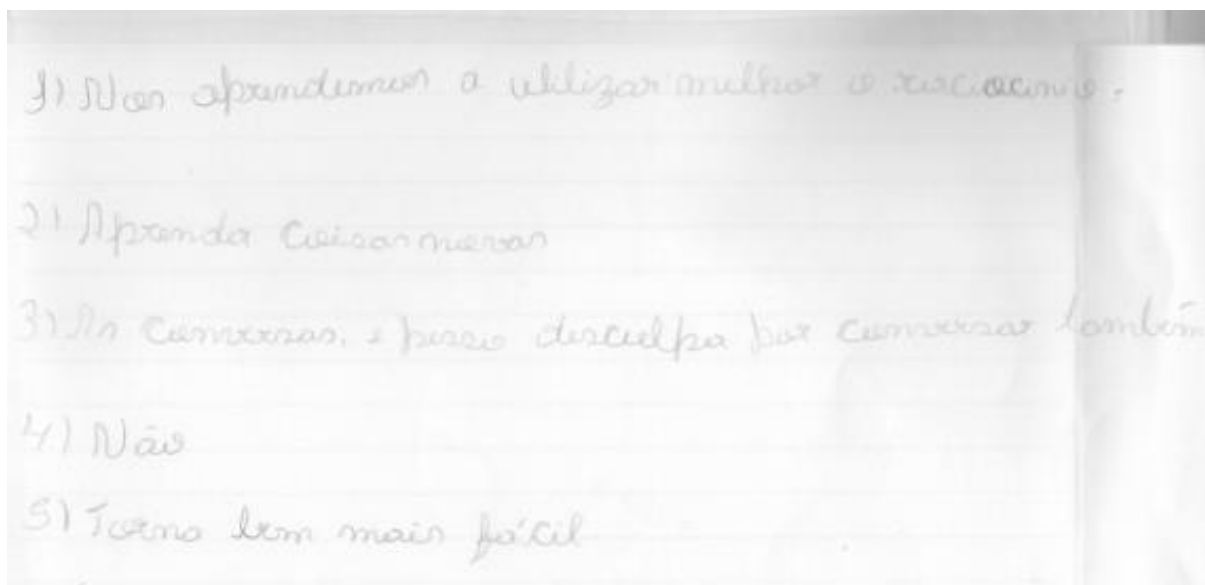 1) Nos aprendemos a utilizar melhor o raciocinio.
2) Aprenda coisas novas
3) As conversas, e pesso desculpa por conversar também
4) Não
5) Torna bem mais fácil